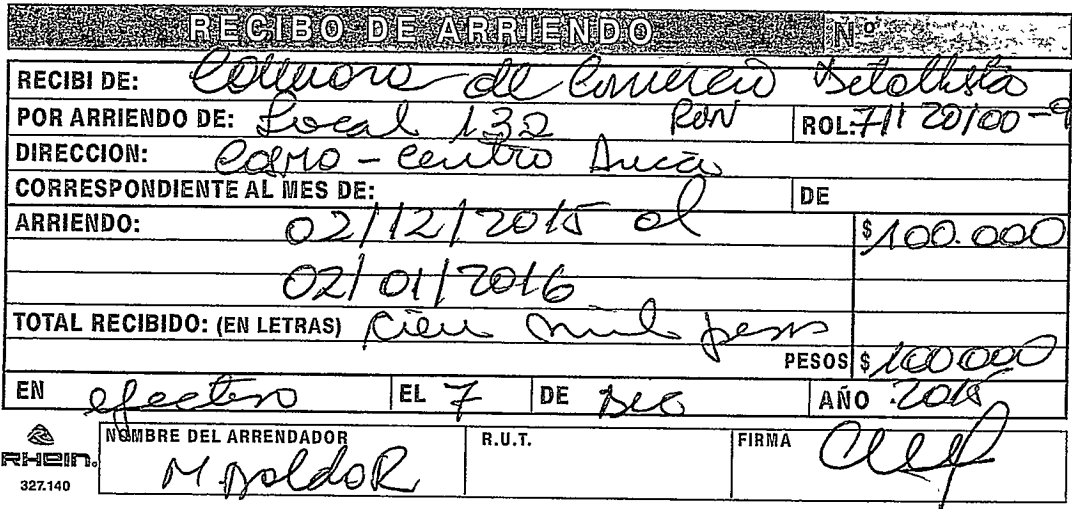 RECIBO DE ARRIENDO Nº
RECIBI DE: Camara de Comercio Detallista
POR ARRIENDO DE: Local 132 ROL: 71120100-9
DIRECCION: Centro
CORRESPONDIENTE AL MES DE: DE
ARRIENDO: 02/12/2015 al $ 100.000
02/01/2016
TOTAL RECIBIDO: (EN LETRAS) Cien mil pesos
PESOS $ 100000
EN efectivo EL 7 DE Dic AÑO 2015
NOMBRE DEL ARRENDADOR R.U.T. FIRMA
RHEIN.
327.140